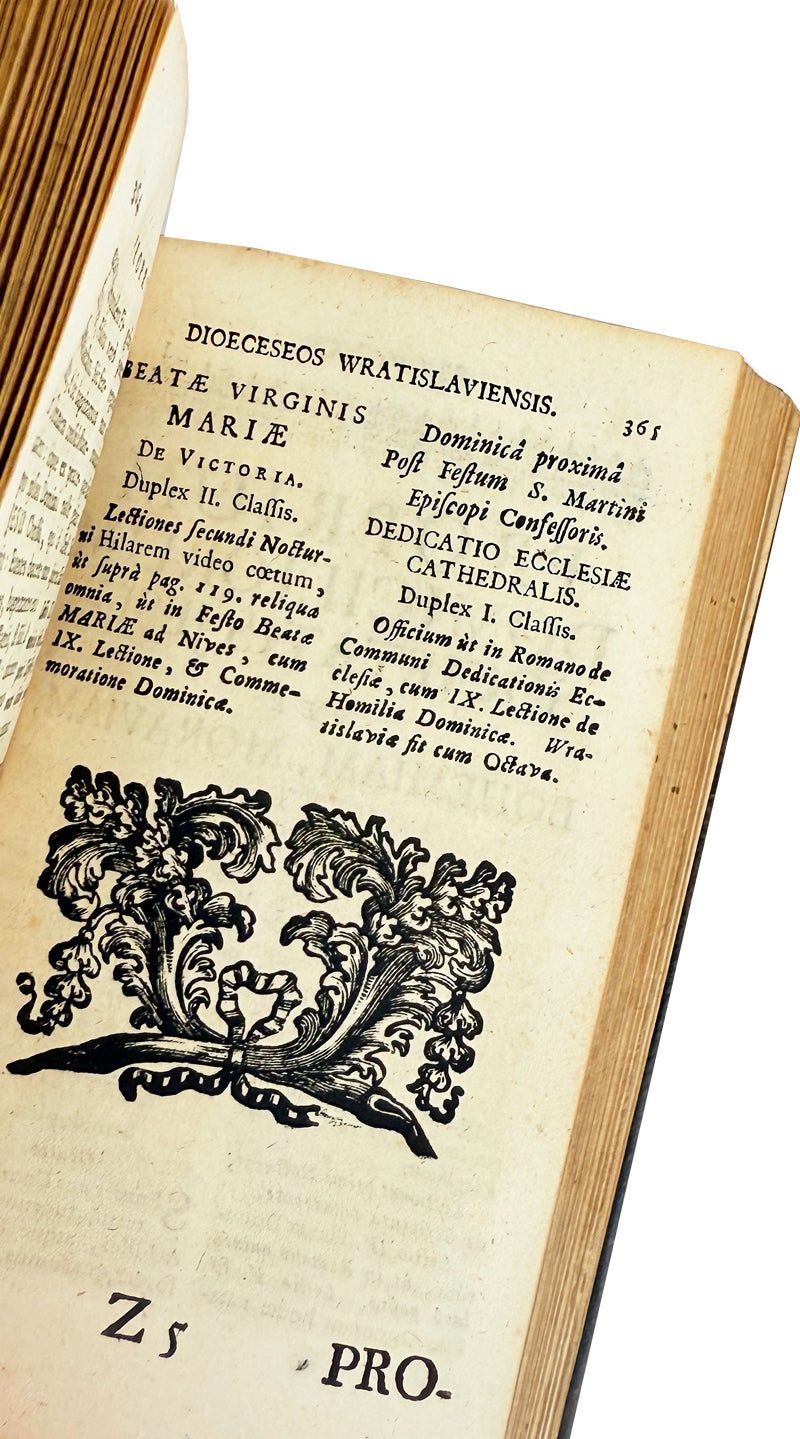 DIOECESEOS WRATISLAVIENSIS.
365
BEATÆ VIRGINIS
MARIÆ
DE VICTORIA.
Duplex II. Claſſis.
Lectiones ſecundi Noctur-
ni Hilarem video cœtum,
ùt ſuprà pag. 119. reliqua
omnia, ùt in Feſto Beatæ
MARIÆ ad Nives, cum
IX. Lectione, & Comme-
moratione Dominicæ.
Dominicâ proximâ
Poſt Feſtum S. Martini
Epiſcopi Confeſſoris.
DEDICATIO ECCLESIÆ
CATHEDRALIS.
Duplex I. Claſſis.
Officium ùt in Romano de
Communi Dedicationis Ec-
cleſiæ, cum IX. Lectione de
Homilia Dominicæ. Wra-
tislaviæ fit cum Octava.
Z 5
PRO-